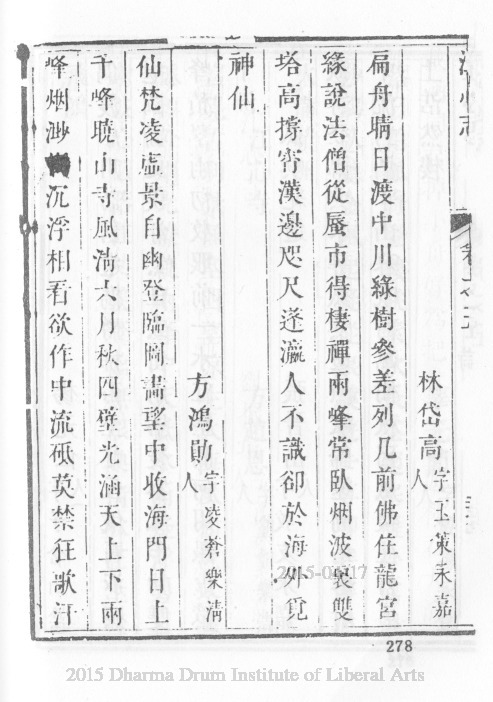 江心志
卷之十二
林岱高字玉策永嘉人
扁舟晴日渡中川綠樹參差列几前佛住龍宮
緣說法僧從蜃市得棲禪兩峰常臥烟波裊雙
塔高撐霄漢邊咫尺蓬瀛人不識卻於海外覓
神仙
方鴻勛字凌蒼樂清人
仙梵凌虛景自幽登臨圖畫望中收海門日上
千峰曉山寺風淌六月秋四壁光涵天上下兩
峰烟渺沉浮相看欲作中流砥莫禁狂歌汗
2015-06-17
278
2015 Dharma Drum Institute of Liberal Arts